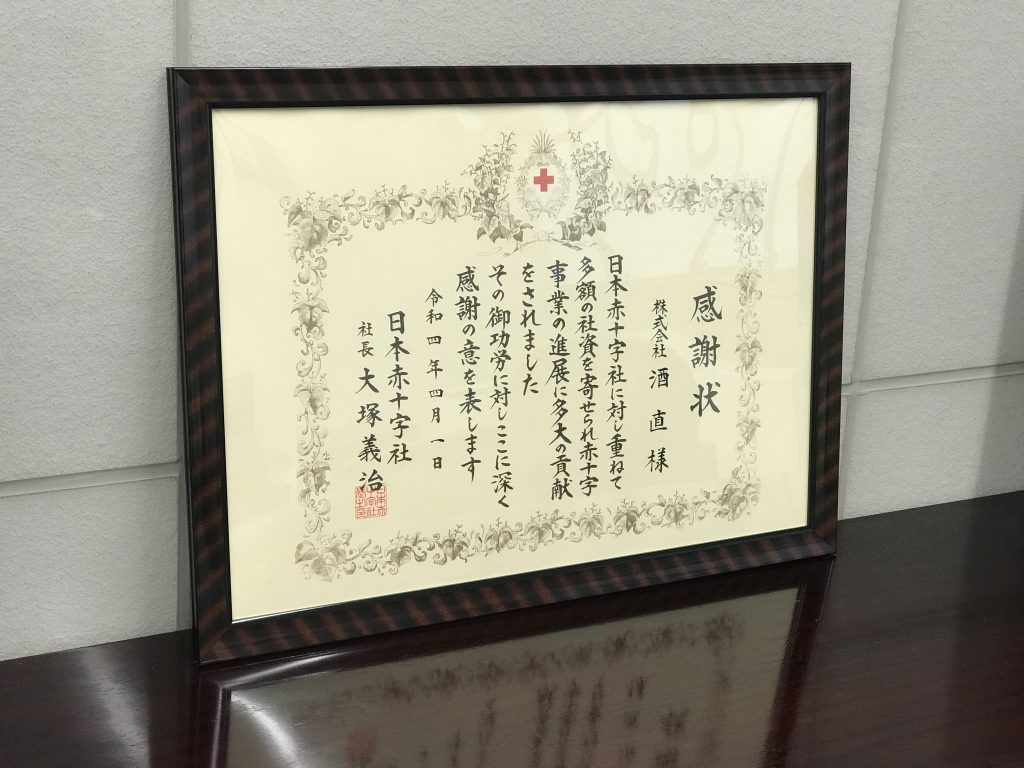 感謝状
株式会社 酒直様
日本赤十字社に対し重ねて
多額の社資を寄せられ赤十字
事業の進展に多大の貢献
をされました
その御功労に対しここに深く
感謝の意を表します
令和四年四月一日
日本赤十字社
社長 大塚義治